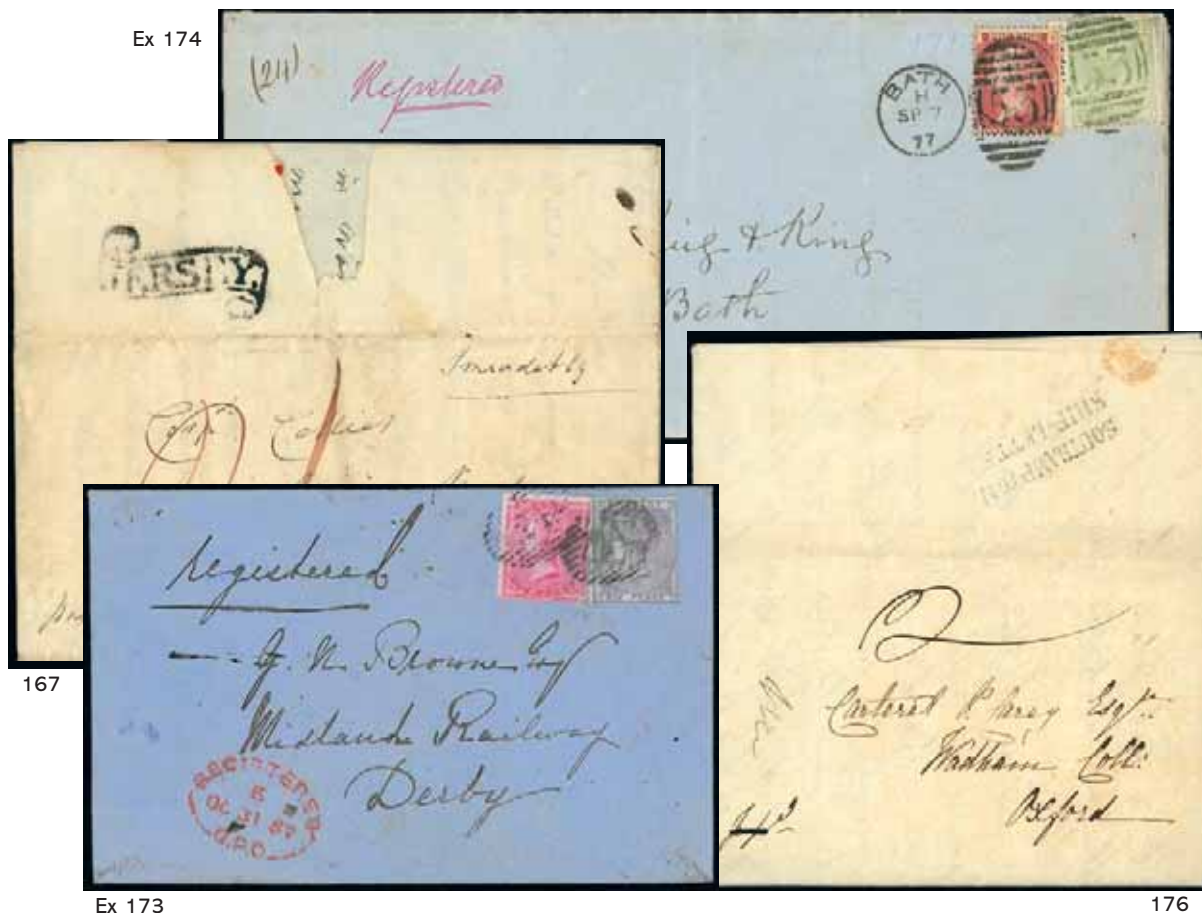 Ex 174
(211)
Registered
BATH
H
SP 7
77
& King
Bath
JERSEY.
Immediately
167
registered
J. N. Browne Esq
Midland Railway
Derby
REGISTERED
B
OC 31 87
G.P.O.
Ex 173
SOUTHAMPTON
SHIP-LETTE
2
Carteret P. Carey Esqre.
Wadham Coll:
Oxford
176